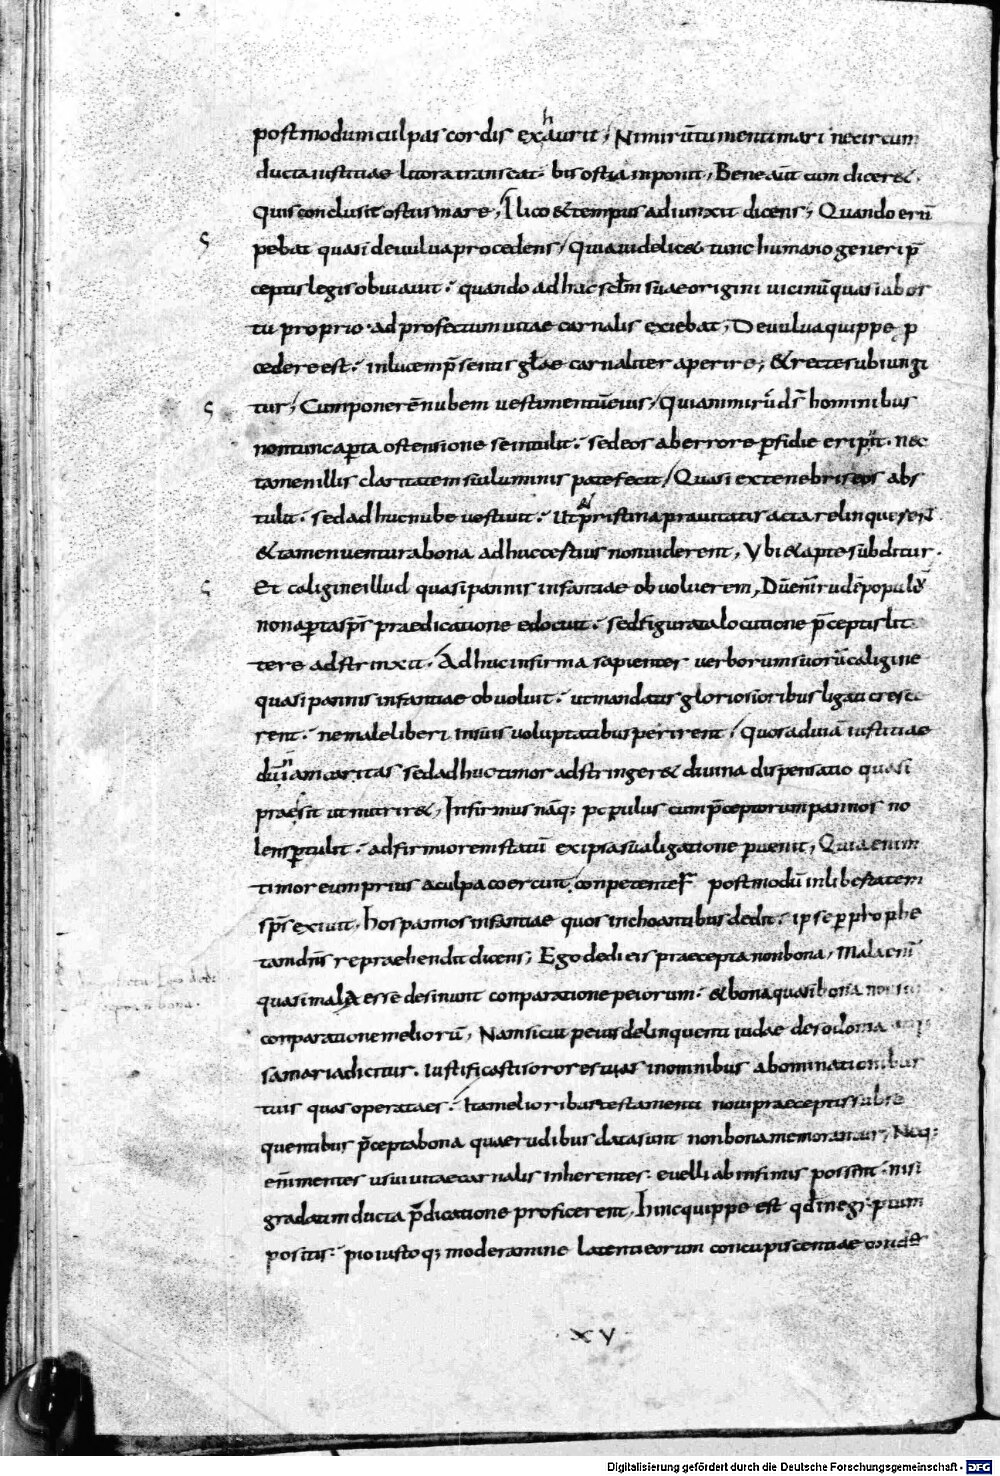 postmodum culpas cordis exhaurit, Nimirū tumenti mari ne circum
ducta iustitiae litora transeat. bis ostia inponit, Bene aūt cum diceret.
Quis conclusit ostiis mare, Ilico & tempus adiunxit dicens; Quando erū
pebat quasi de vulva procedens, Quia videlicet tunc humano generi p̄
ceptis legis obviavit. quando adhac sclm suae origini vicinū quasi ab or
tu proprio. ad profectum vitae carnalis exiebat, De vulva quippe p
cedere est. in lucem p̄sentis glae carnaliter aperire; & recte subiungi
tur, Cum ponerē nubem vestimentū eius, Quia nimirū ds hominibus
non tunc aperta ostensione se intulit. sed eos ab errore pfidie eripuit. nec
tamen illis claritatem sui luminis patefecit, Quasi ex tenebris eos abs
tulit. sed adhuc nube vestivit. Ut pristina pravitatis acta relinquerent
& tamen ventura bona adhuc certius non viderent, Ubi & apte subditur.
Et caligine illud quasi pannis infantiae obvolverem, Dū enim rudē populū
non aperta sps praedicatione edocuit. sed figurata locutione p̄ceptis lit
tere adstrinxit. Adhuc infirma sapienter verborum suorū caligine
quasi pannis infantiae obvoluit. ut mandatis gloriosioribus ligati cresce
rent. ne male liberi in suis voluptatibus perirent, Quos ad viā iustitiae
dū n iam caritas sed adhuc timor adstringeret divina dispensatio quasi
praessit ut nutriret, Infirmus nāq; populus cum p̄ceptorum pannos no
lens ptulit. ad firmiorem statū ex ipsa sua ligatione pvenit, Quia enim
timor eum prius a culpa coercuit, conpetenter postmodū in libertatem
sps exivit. hos pannos infantiae quos inchoantibus dedit. ipse per prophe
tam dns repraehendit dicens; Ego dedi eis praecepta non bona, Mala enī
quasi mala esse desinunt conparatione peiorum. & bona quasi bona non sunt
conparatione meliorū, Nam sicut peius delinquenti iudae de sodoma
samaria dicitur. Iustificasti sorores tuas in omnibus abominationibus
tuis quas operata es. Ita melioribus testamenti novi praeceptis subse
quentibus p̄cepta bona quae rudibus data sunt non bona memorantur, Neq;
eni mentes usui vitae carnalis inherentes. evelli ab infimis possent. nisi
gradatim ducta p̄dicatione proficerent, hinc quippe est qđ in egiptum
positis. pio iustoq; moderamine latenti eorum concupiscentiae
xv
Digitalisierung gefördert durch die Deutsche Forschungsgemeinschaft - DFG